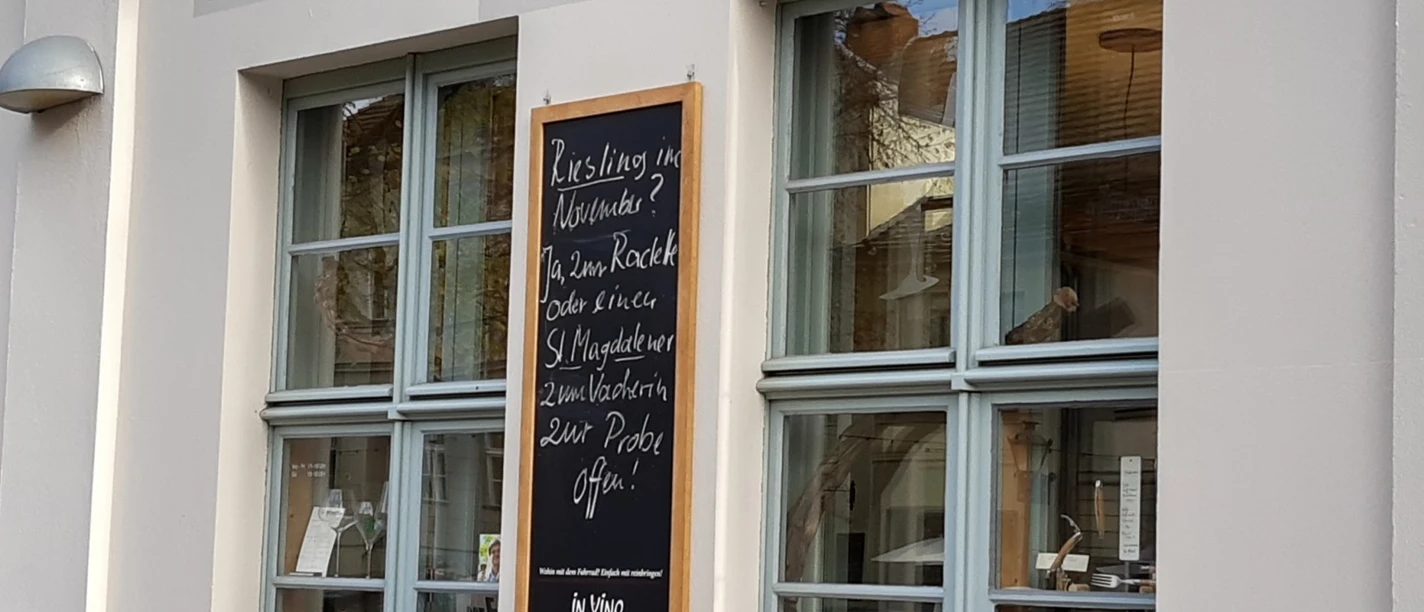 Riesling im
November?
Ja, zum Raclette
oder einen
St. Magdalener
zum Vacherin
zur Probe
offen!
Wohin mit dem Fahrrad? Einfach mit reinbringen!
in vino